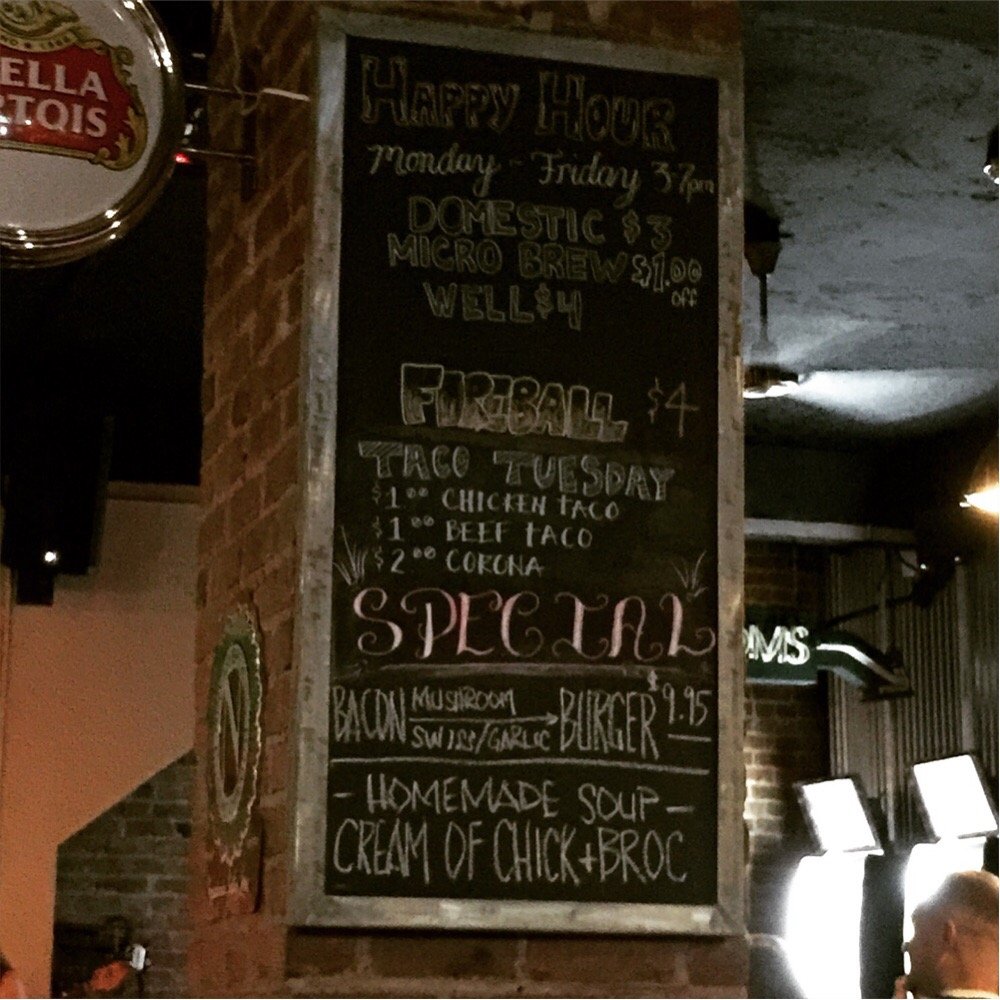 ELLA
RTOIS
HAPPY HOUR
Monday - Friday 3-7pm
DOMESTIC $3
MICRO BREW $1.00
off
WELL $4
FIREBALL $4
TACO TUESDAY
$1.00 CHICKEN TACO
$1.00 BEEF TACO
$2.00 CORONA
SPECIAL
BACON MUSHROOM SWISS/GARLIC BURGER $9.95
- HOMEMADE SOUP -
CREAM OF CHICK+BROC
OMS
N